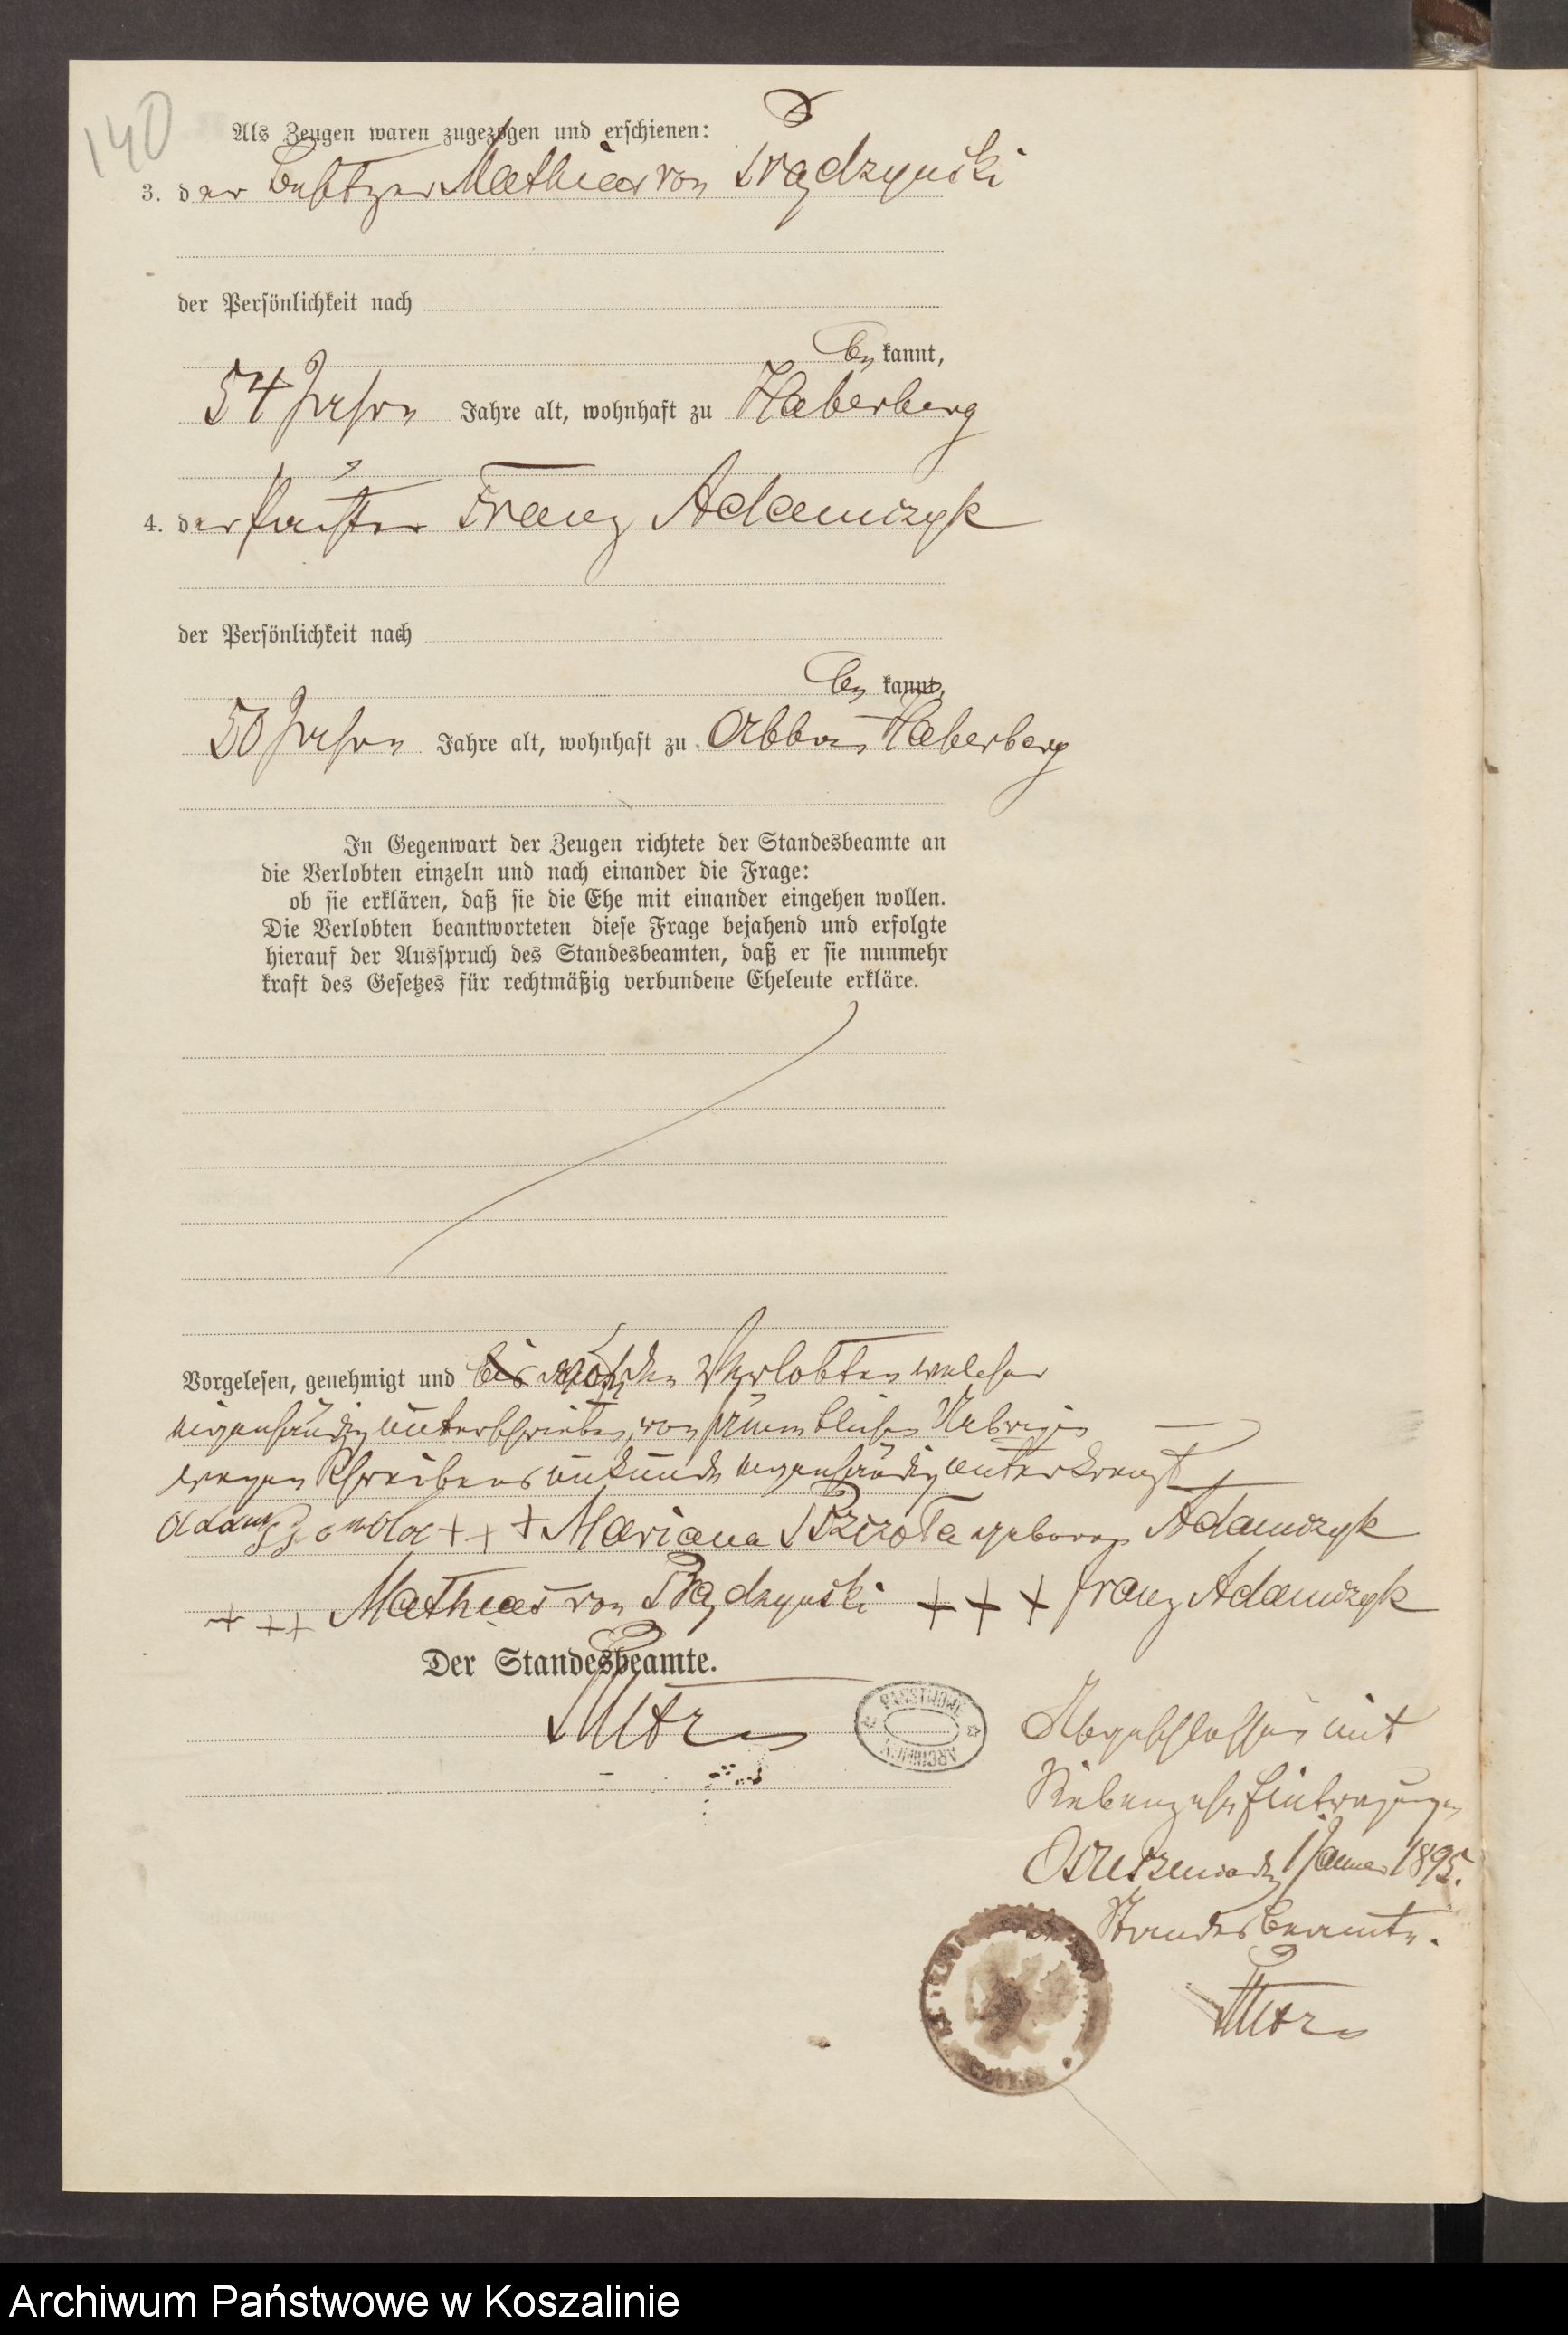 140
Als Zeugen waren zugezogen und erschienen:
3. der Besitzer Mathias von Prądzynski
der Persönlichkeit nach
be kannt,
54 Jahre Jahre alt, wohnhaft zu Haberberg
4. der Franz Adamczyk
der Persönlichkeit nach
be kannt,
50 Jahre Jahre alt, wohnhaft zu Abbau Haberberg
In Gegenwart der Zeugen richtete der Standesbeamte an
die Verlobten einzeln und nach einander die Frage:
ob sie erklären, daß sie die Ehe mit einander eingehen wollen.
Die Verlobten beantworteten diese Frage bejahend und erfolgte
hierauf der Ausspruch des Standesbeamten, daß er sie nunmehr
kraft des Gesetzes für rechtmäßig verbundene Eheleute erkläre.
Vorgelesen, genehmigt und von dem Verlobten welcher
eigenhändig unterschrieben, von sämmtlichen Uebrigen
wegen Schreibens unkunde eigenhändig unterkreuzt
Adam +++ Mariana geboren Adamczyk
+++ Mathias von Prądzynski +++ Franz Adamczyk
Der Standesbeamte.
PAŃSTWOWE ARCHIWUM
Abgeschlossen mit
Siebenzehn Eintragungen
1 Januar 1895.
Standesbeamte.
Archiwum Państwowe w Koszalinie